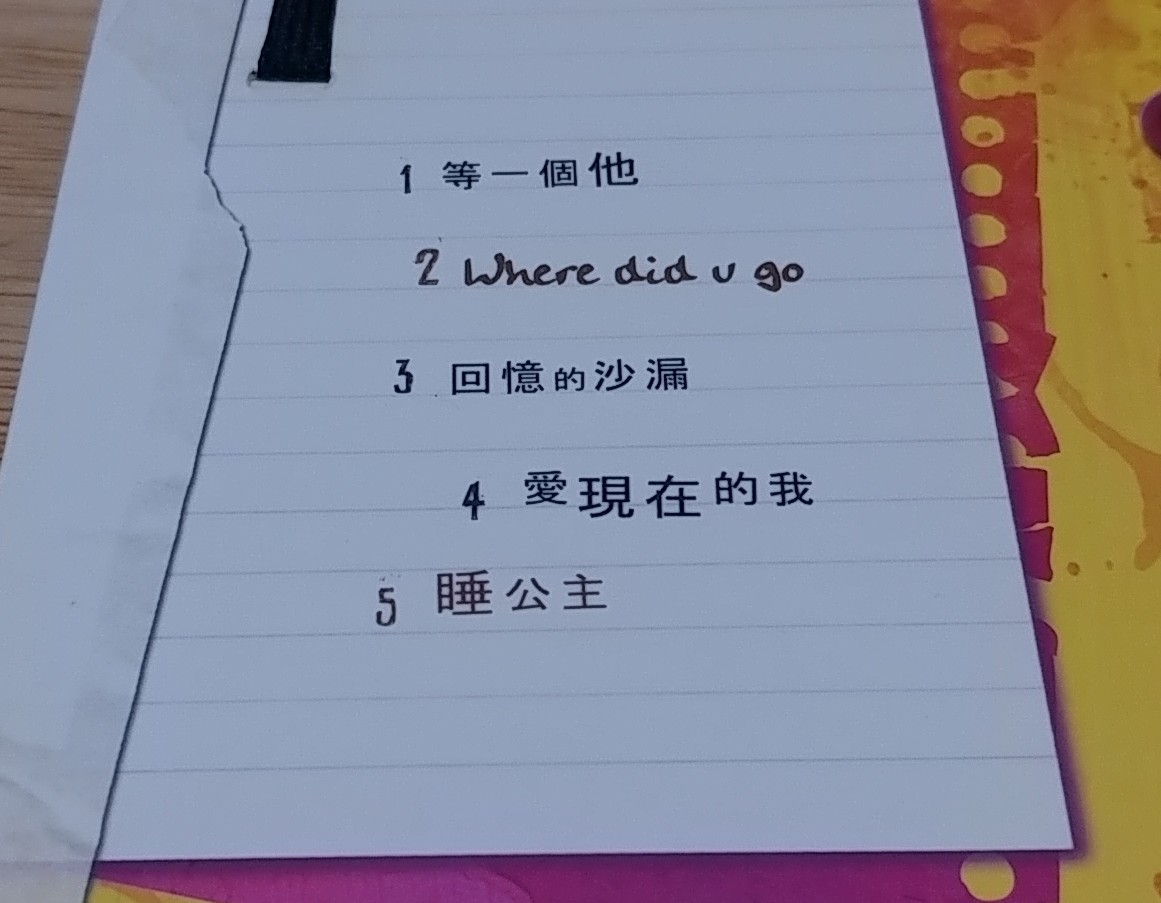 1 等一個他
2 Where did u go
3 回憶的沙漏
4 愛現在的我
5 睡公主